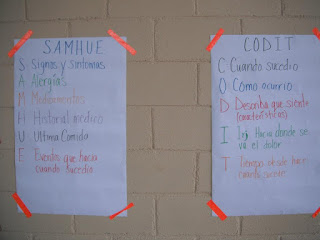 SAMHUE
S Signos y sintomas
A Alergías
M Medicamentos
H Historial medico
U Ultima Comida
E Eventos que hacia
cuando sucedio
CODIT
C Cuando sucedio
O Como ocurrio
D que siente
(características)
I Hacia donde se
va el dolor
T Tiempo desde hace
cuanto sucede